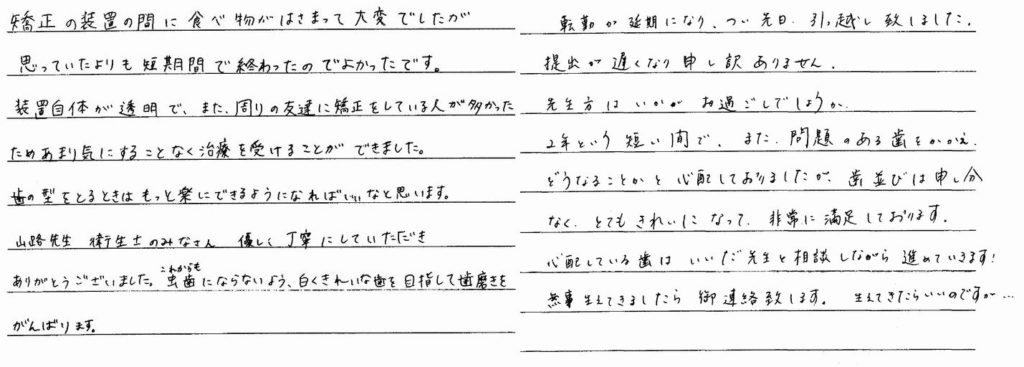 矯正の装置の間に食べ物がはさまって大変でしたが
思っていたよりも短期間で終わったのでよかったです。
装置自体が透明で、また、周りの友達に矯正をしている人が多かった
ためあまり気にすることなく治療を受けることができました。
歯の型をとるときはもっと楽にできるようになればいいなと思います。
山路先生 衛生士のみなさん 優しく丁寧にしていただき
これからも
ありがとうございました。虫歯にならないよう、白くきれいな歯を目指して歯磨きを
がんばります。
転勤が延期になり、つい先日、引っ越し致しました。
提出が遅くなり申し訳ありません。
先生方はいかがお過ごしでしょうか。
2年という短い間で、また、問題のある歯をかかえ、
どうなることかと心配しておりましたが、歯並びは申し分
なく、とてもきれいになって、非常に満足しております。
心配している歯はいいだ先生と相談しながら進めていきます!
無事生えてきましたら御連絡致します。生えてきたらいいのですが…